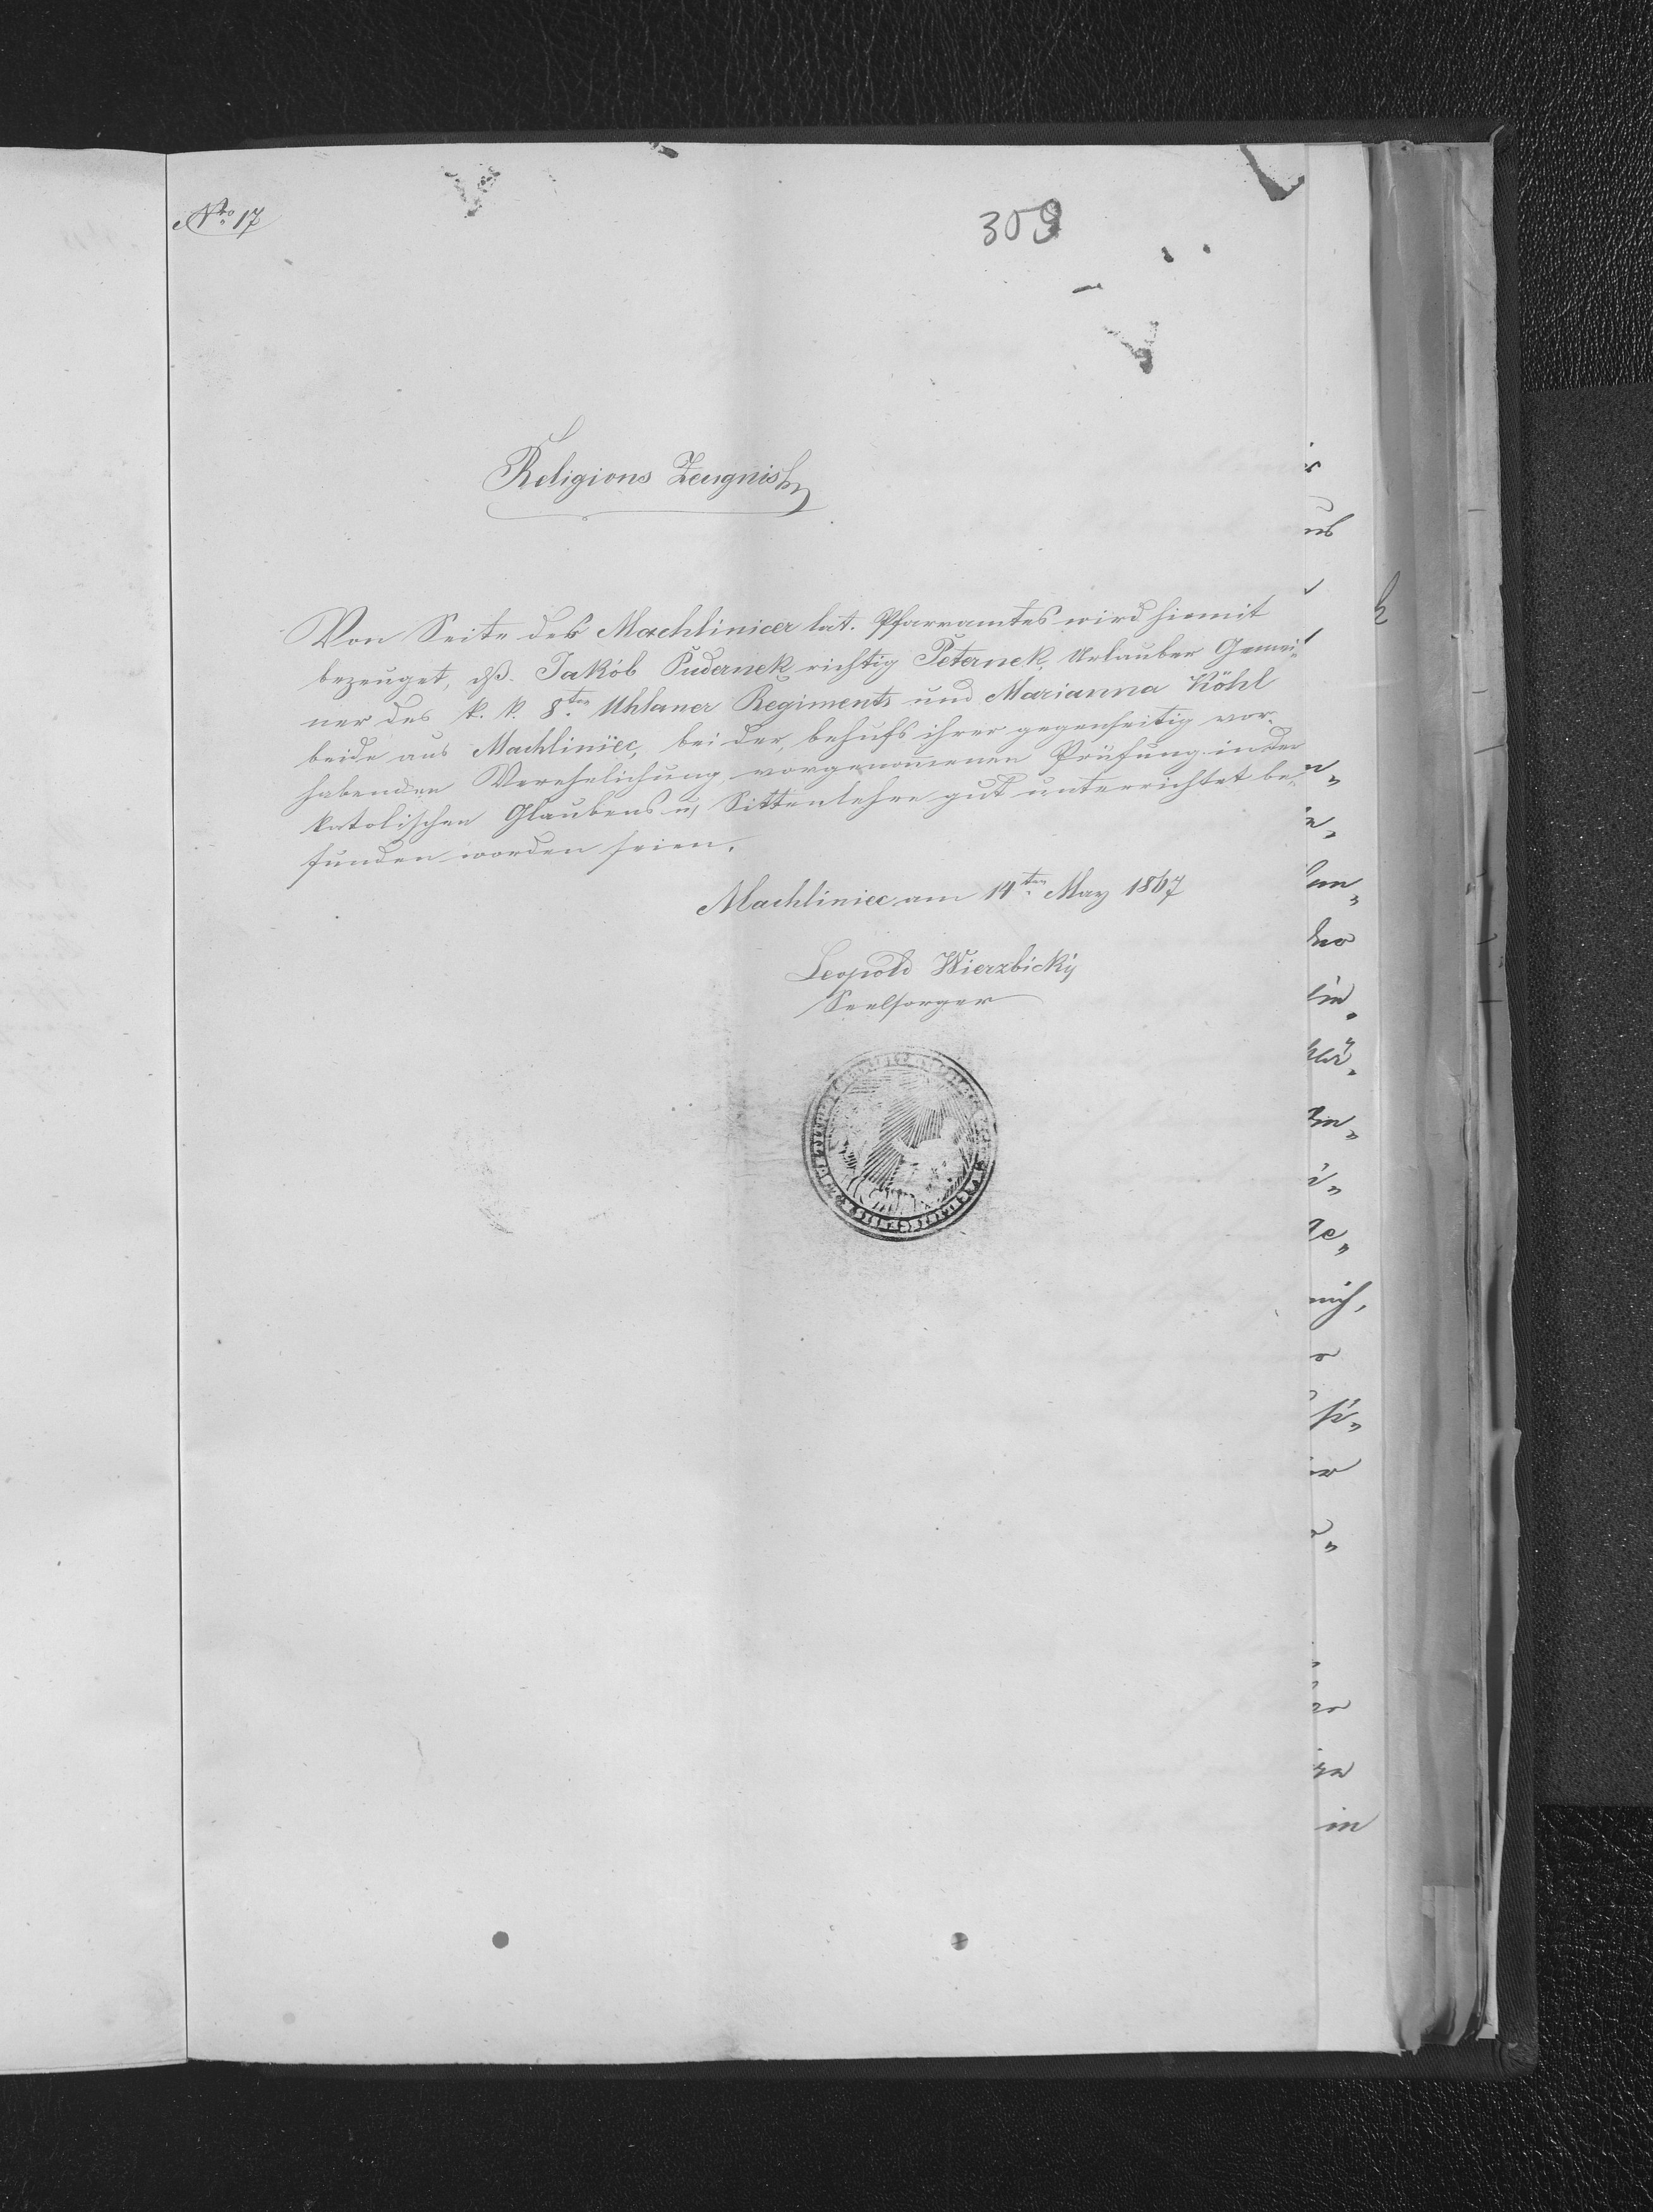 Nro 17
309
Religions Zeugniß
Von Seite des Machlinicer lat. Pfarramtes wird hiemit
bezeuget, dß. Jakób Pudernek richtig Peternek, Urlauber Gemei-
ner des k. k. 8ten Uhlaner Regiments und Marianna Köhl
beide aus Machliniec, bei der, behufs ihrer gegenseitig vor-
habenden Verehelichung, vorgenommenen Prüfung in der
katolischen Glaubens u, Sittenlehre gut unterrichtet be-
funden worden seien.
Machliniec am 14ten May 1867
Leopold Wierzbicky
Seelsorger